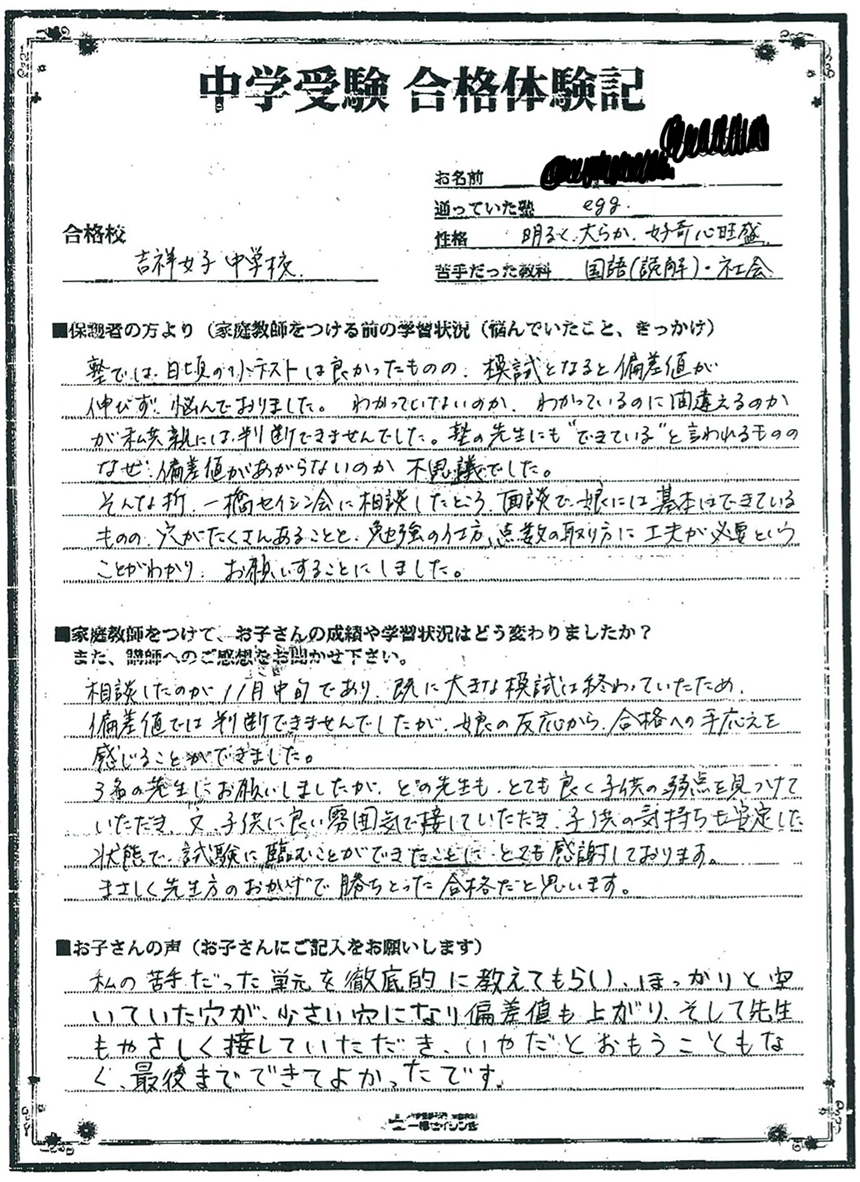 中学受験 合格体験記
お名前
通っていた塾 egg.
性格 明るく、大らか、好奇心旺盛
苦手だった教科 国語(読解)・社会
合格校
吉祥女子中学校
■保護者の方より（家庭教師をつける前の学習状況（悩んでいたこと、きっかけ）
塾では、日頃の小テストは良かったものの、模試となると偏差値が
伸びず、悩んでおりました。わかっていないのか、わかっているのに間違えるのか
が私共親には、判断できませんでした。塾の先生にも"できている"と言われるものの
なぜ、偏差値があがらないのか不思議でした。
そんな折、一橋セイシン会に相談したところ、面談で、娘には基本はできている
ものの、穴がたくさんあることと、勉強の仕方、点数の取り方に工夫が必要という
ことがわかり、お願いすることにしました。
■家庭教師をつけて、お子さんの成績や学習状況はどう変わりましたか？
また、講師へのご感想をお聞かせ下さい。
相談したのが11月中旬であり、既に大きな模試は終わっていたため、
偏差値では判断できませんでしたが、娘の反応から、合格への手応えを
感じることができました。
3名の先生にお願いしましたが、どの先生も、とても良く子供の弱点を見つけて
いただき、又、子供に良い雰囲気で接していただき、子供の気持ちも安定した
状態で、試験に臨むことができたことに、とても感謝しております。
まさしく先生方のおかげで勝ちとった合格だと思います。
■お子さんの声（お子さんにご記入をお願いします）
私の苦手だった単元を徹底的に教えてもらい、ぽっかりと空
いていた穴が、小さい穴になり偏差値も上がり、そして先生
もやさしく接していただき、いやだとおもうこともな
く、最後までできてよかったです。
一橋セイシン会